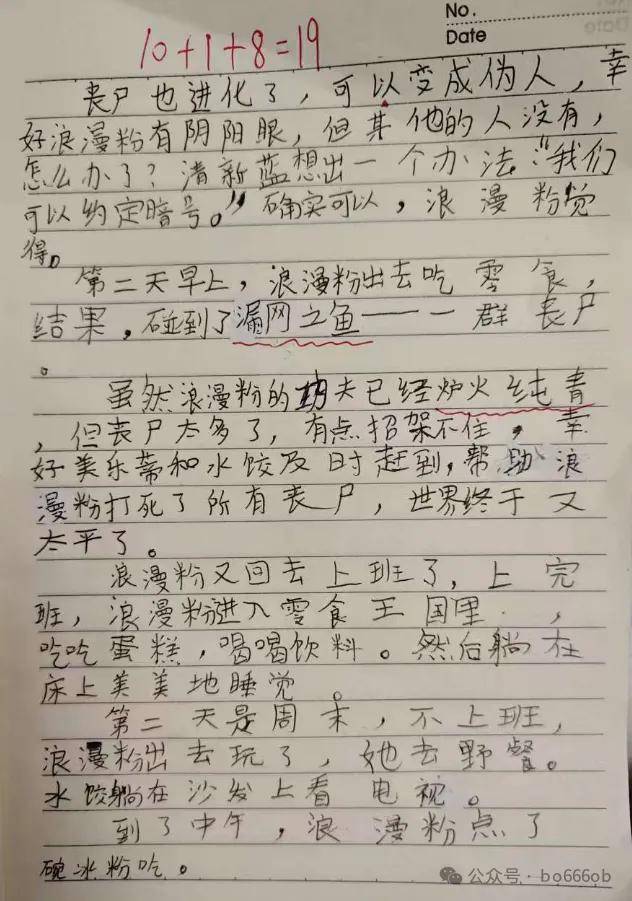 No.
Date
10+1+8=19
丧尸也进化了，可以变成伪人，幸
好浪漫粉有阴阳眼，但其他的人没有，
怎么办了？清新蓝想出一个办法：“我们
可以约定暗号。”确实可以，浪漫粉觉
得。
第二天早上，浪漫粉出去吃零食，
结果，碰到了漏网之鱼——一群丧尸
。
虽然浪漫粉的功夫已经炉火纯青
，但丧尸太多了，有点招架不住，幸
好美乐蒂和水饺及时赶到，帮助浪
漫粉打死了所有丧尸，世界终于又
太平了。
浪漫粉又回去上班了，上完
班，浪漫粉进入零食王国里，
吃吃蛋糕，喝喝饮料。然后躺在
床上美美地睡觉。
第二天是周末，不上班，
浪漫粉出去玩了，她去野餐。
水饺躺在沙发上看电视。
到了中午，浪漫粉点了
碗冰粉吃。
公众号·bo666ob